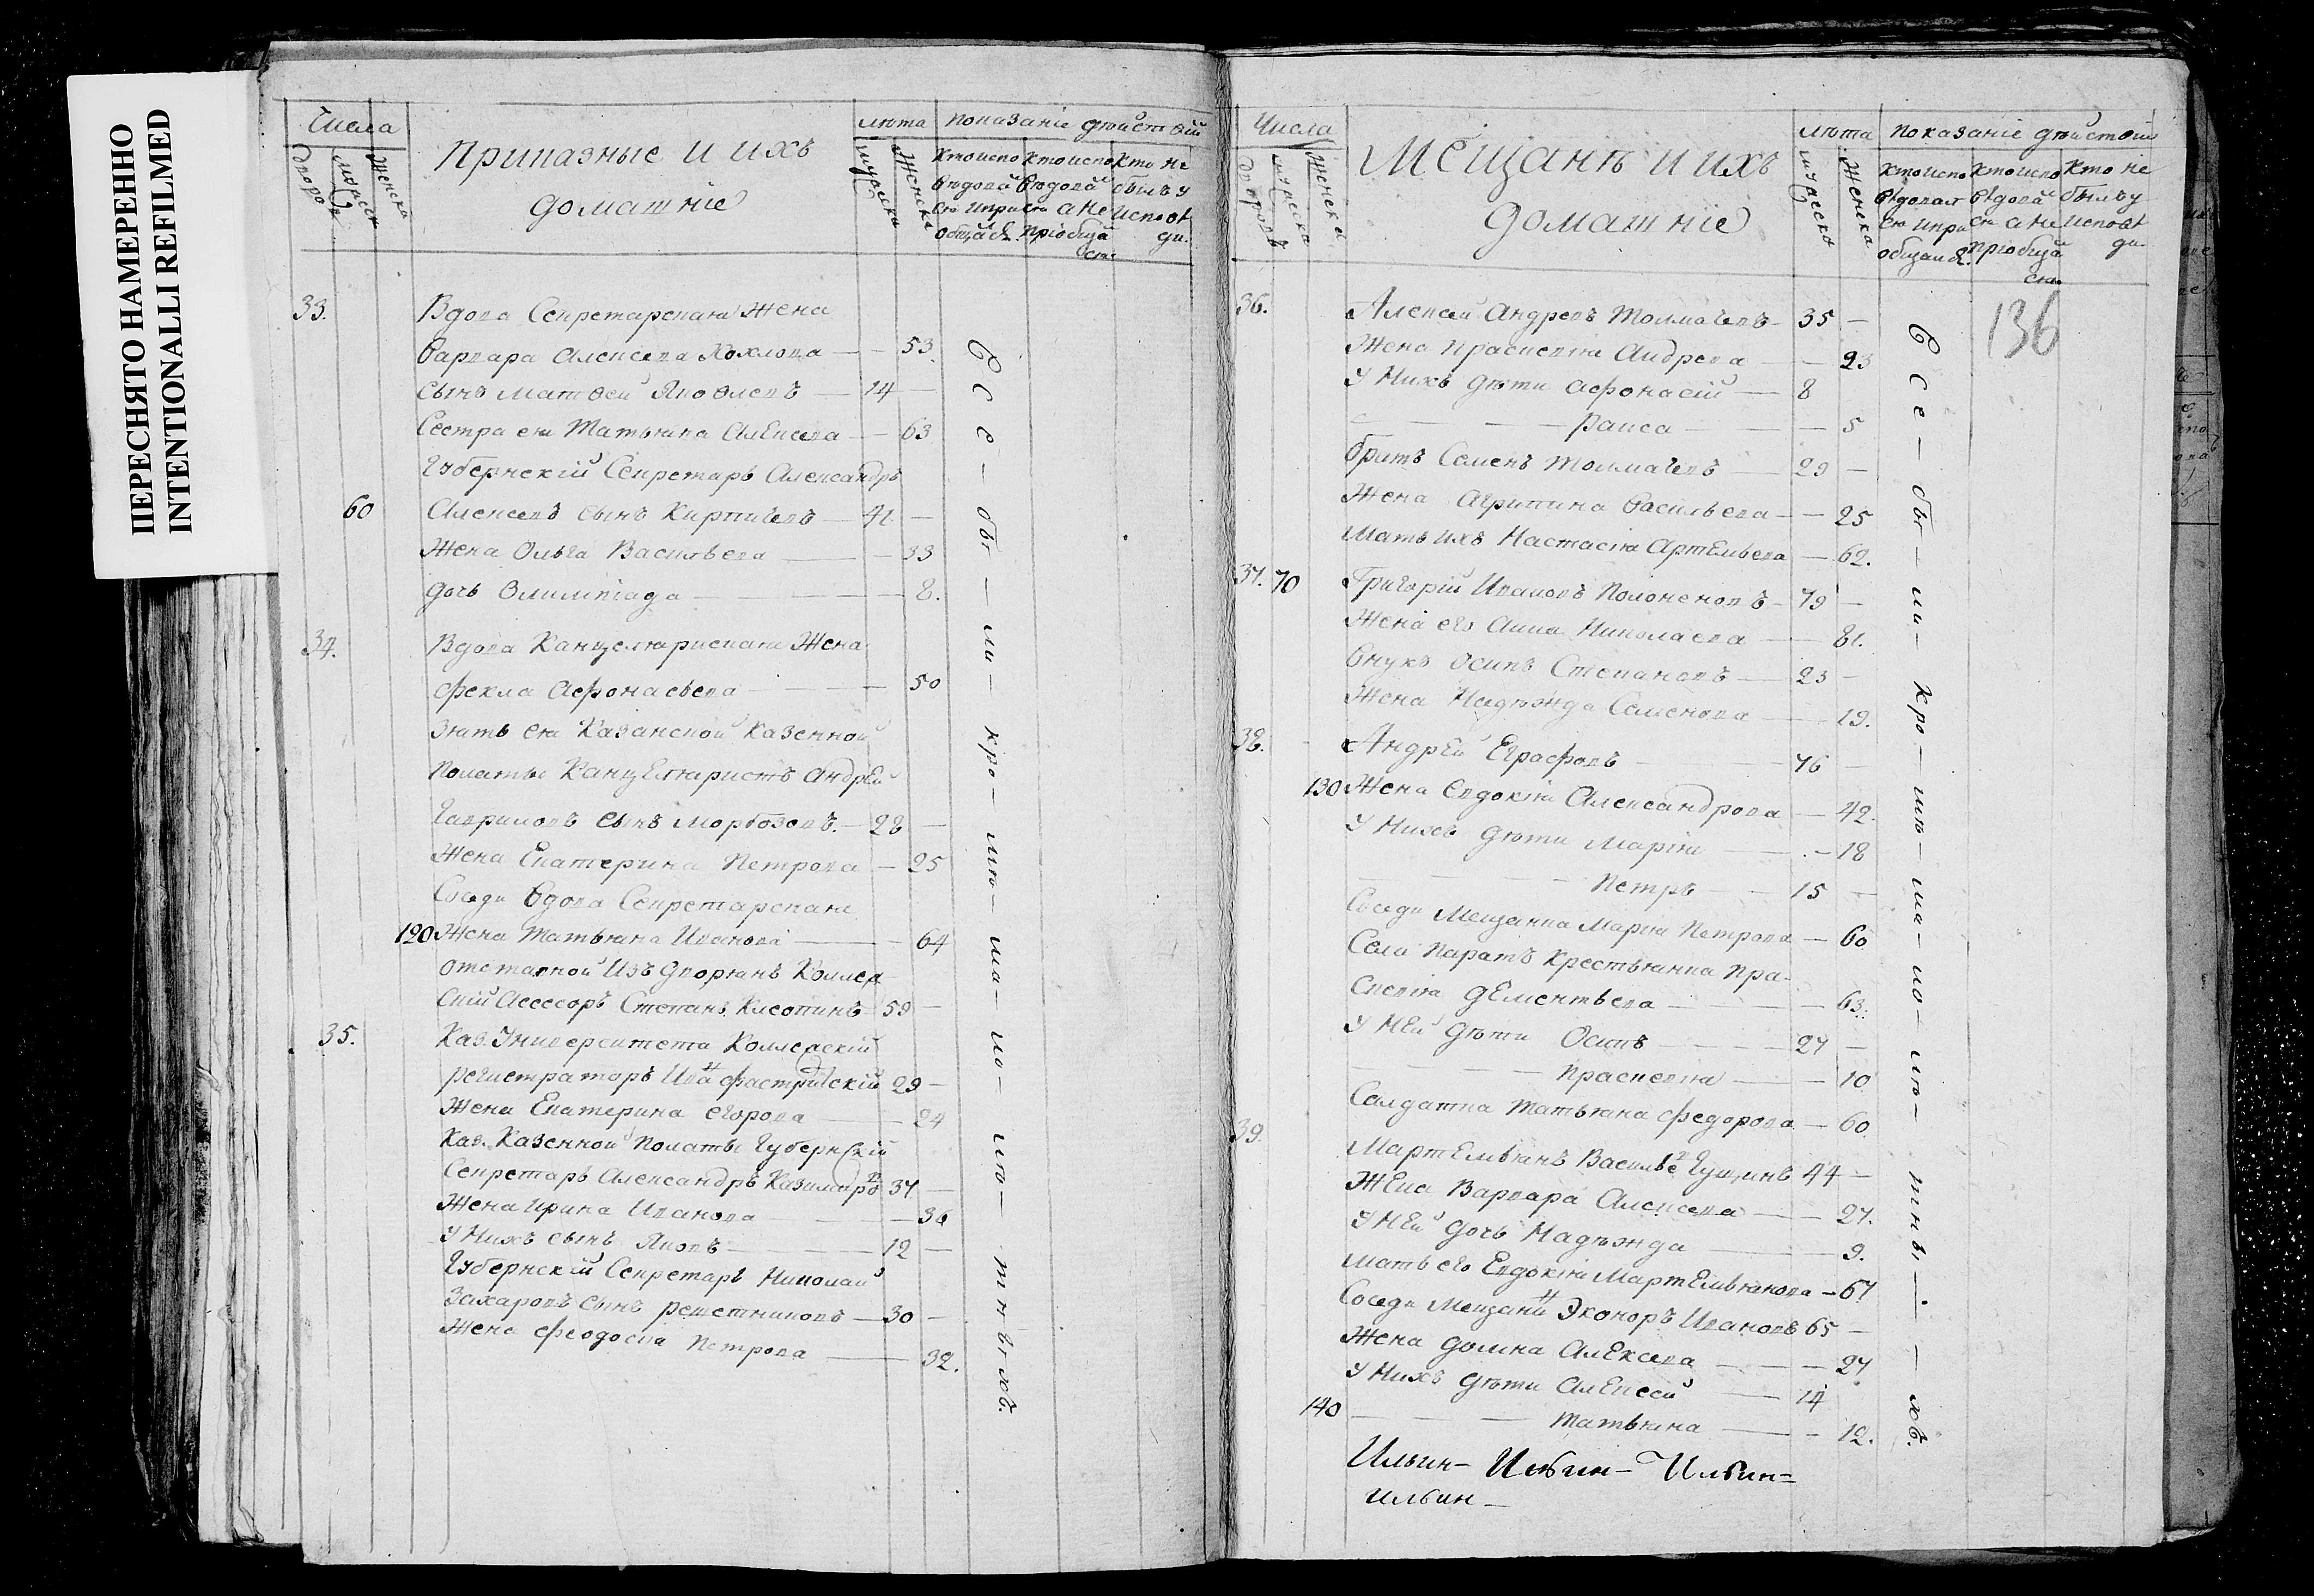 ПЕРЕСНЯТО НАМЕРЕННО
INTENTIONALLI REFILMED
Числа
дворовъ
мужеска
женска
Приказные и ихъ
домашніе
лѣта
мужеска
женска
показаніе дѣйствий
кто испо
вѣдовай
ся и при
общайся.
кто испо
вѣдовай
ся а не
пріобща
ся.
кто не
былъ у
исповѣ
ди.
33.
Вдова Секретарская Жена
Варвара Алексева Хохлова — — 53.
сынъ Матвей Яковлевъ — 14 —
Сестра ея Татьяна Алексева — — 63
Губернскій Секретарь Александръ
60 Алексевъ сынъ Кирпичевъ — 41 —
Жена Ольга Васильева — — 33
дочь Олимпіада — — 8.
34. Вдова Канцеляриская Жена
Фекла Афонасьева — — 50
Зять ея Казанской Казенной
Полаты Канцеляристъ Андрей
Гавриловъ сынъ Морбозовъ. — 28 —
Жена Екатерина Петрова — 25
Соседи Вдова Секретарская
120 Жена Татьяна Иванова — — 64
Отставной Изъ Дворянъ Коллеж
скій Асессоръ Степанъ 59 —
35. Каз. Университета Коллежскій
регистраторъ 29 —
Жена Екатерина Егорова — 24
Каз. Казенной Полаты Губернскій
Секретарь Александръ Казимиръ 37 —
Жена Ирина Иванова — — 36
У Нихъ сынъ Яковъ — 12 —
Губернскій Секретарь Николай
Захаровъ сынъ решетниковъ — 30 —
Жена Феодосія Петрова — 32.
Все — бы — ли — кро — мѣ — ма — ло — лѣ — тны хъ.
Числа
дворовъ
мужеска
женска
Мещанъ и ихъ
домашніе
лѣта
мужеска
женска
показаніе дѣйствій
кто испо
вѣдовал
ся и при
общался.
кто испо
вѣдовай
ся а не
пріобща
ся.
кто не
былъ у
исповѣ
ди.
136
36. Алексей Андревъ Толмачевъ — 35 —
Жена Прасковія Андрева — — 23
У Нихъ дѣти Афонасій — 8
— — — Раиса — — 5
братъ Семенъ Толмачевъ — 29 —
Жена Агрипина Васильева — — 25
Мать ихъ Настасія Артемьева — 62.
37. 70 Григорій Ивановъ Полоненовъ — 79 —
Жена его Анна Николаева — — 81.
Внукъ Осипъ Степановъ — 23 —
Жена Надѣжда Семенова — — 19.
38. Андрей Еграфовъ — 76 —
130 Жена Евдокія Александрова — 42.
У Нихъ дѣти Марія — — 18
— — — Петръ — 15 —
Соседи Мещанка Марія Петрова — 60
Села Паратъ Крестьянка Пра-
сковія Дементьева — — 63.
У Ней дѣти Осипъ — 27 —
— — — Прасковія — — 10
39. Салдатка Татьяна Федорова — 60
Мартемьянъ Василье Гущинъ 44 —
Жена Варвара Алексева — — 27.
У Ней дочь Надѣжда — 9.
Мать его Евдокія Мартемьянова — 67
Соседи Мещанин Эконоръ Ивановъ 65 —
Жена Домна Алексева — — 27
У Нихъ дѣти Алексей — 14
140 — — — Татьяна — — 12.
Ильин — Ильин — Ильин =
Ильин —
Все — бы — ли — кро — мѣ — ма — ло — лѣ — тны — хъ.